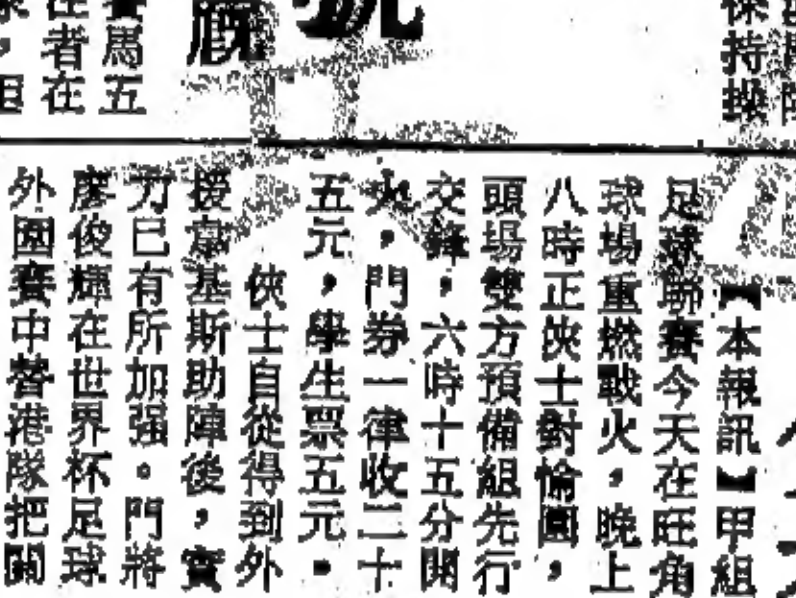 號
厩
保持操
賽馬五
往者在
【本報訊】甲組
足球聯賽今天在旺角
球場重燃戰火，晚上
八時正俠士對愉園，
頭場雙方預備組先行
交鋒，六時十五分開
火，門券一律收二十
五元，學生票五元。
俠士自從得到外
援韋基斯助陣後，實
力已有所加强。門將
廖俊輝在世界杯足球
外圍賽中替港隊把關